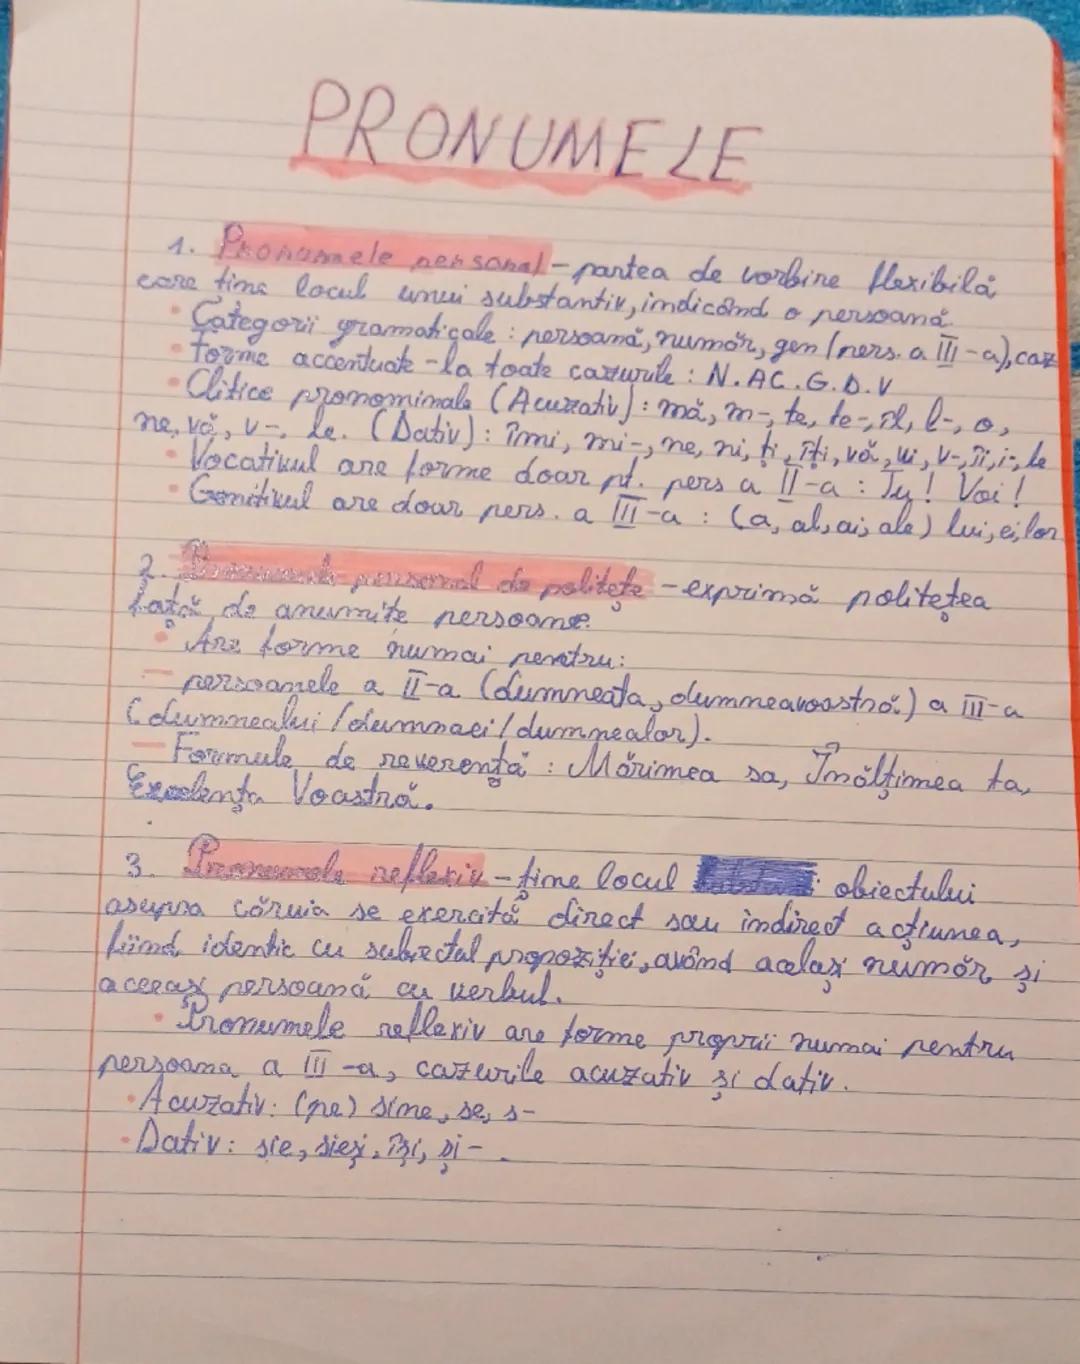 PRONUMELE
1. Pronumele personal - partea de vorbire flexibilă
care ține locul unui substantiv, indicând o persoană.
• Categorii gramaticale : persoană, număr, gen (pers. a III-a), caz
• Forme accentuate - la toate cazurile : N. AC. G. D. V
• Clitice pronominale (Acuzativ) : mă, m-, te, te-, îl, l-, o,
ne, vă, v-, le. (Dativ) : îmi, mi-, ne, ni, ți, îți, vă, vi, v-, îi, i-, le
• Vocativul are forme doar pt. pers a II-a : Tu! Voi!
• Genitivul are doar pers. a III-a : (a, al, ai, ale) lui, ei, lor
2. Pronumele personal de politețe - exprimă politețea
față de anumite persoane.
• Are forme numai pentru:
— persoanele a II-a (dumneata, dumneavoastră) a III-a
(dumnealui / dumneaei / dumnealor).
— Formule de reverență : Mărimea sa, Înălțimea ta,
Excelența Voastră.
3. Pronumele reflexiv - ține locul obiectului
asupra căruia se exercită direct sau indirect acțiunea,
fiind identic cu subiectul propoziției, având același număr și
aceeași persoană cu verbul.
• Pronumele reflexiv are forme proprii numai pentru
persoana a III-a, cazurile acuzativ și dativ.
• Acuzativ: (pe) sine, se, s-
• Dativ: sie, sieși, își, și- .